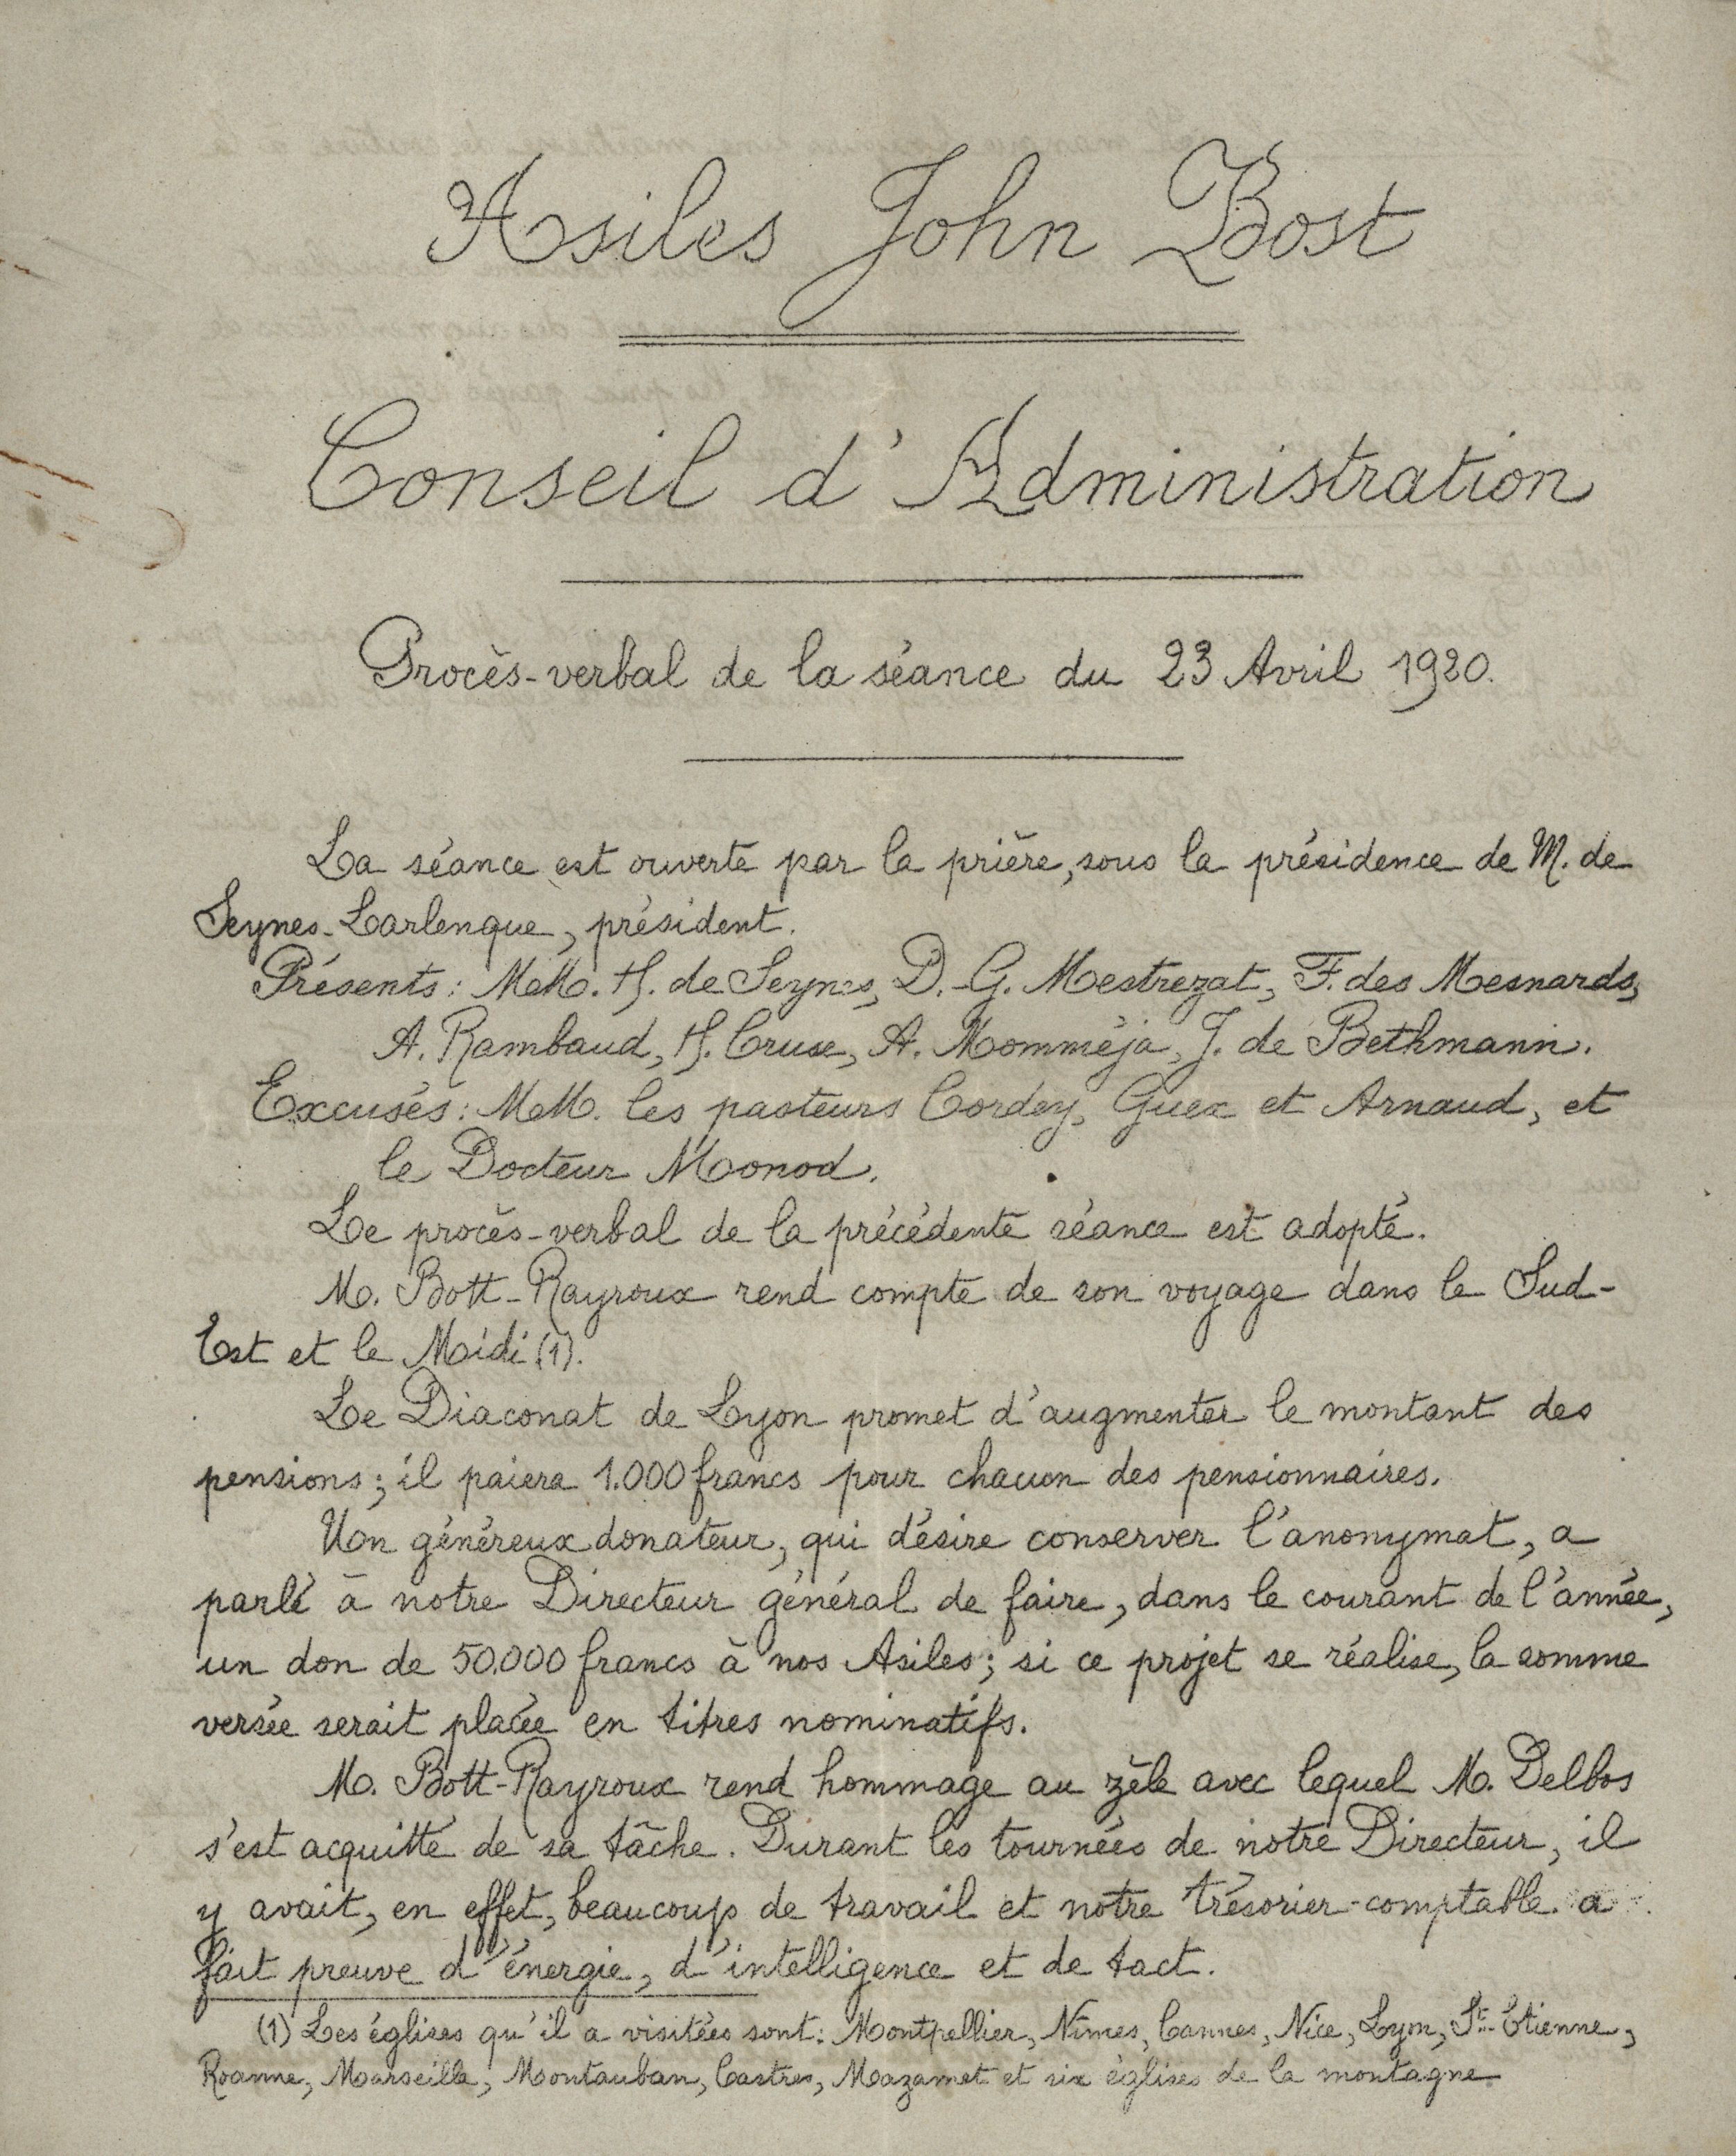 Asiles John Bost
Conseil d'Administration
Procès-verbal de la séance du 23 Avril 1920.
La séance est ouverte par la prière, sous la présidence de M. de
Seynes-Larlenque, président.
Présents: MM. H. de Seynes, D.-G. Mestrezat, F. des Mesnards,
A. Rambaud, H. Cruse, A. Momméja, J. de Bethmann.
Excusés: MM. les pasteurs Cordey, Guex et Arnaud, et
le Docteur Monod.
Le procès-verbal de la précédente séance est adopté.
M. Bott-Rayroux rend compte de son voyage dans le Sud-
Est et le Midi (1).
Le Diaconat de Lyon promet d'augmenter le montant des
pensions; il paiera 1.000 francs pour chacun des pensionnaires.
Un généreux donateur, qui désire conserver l'anonymat, a
parlé à notre Directeur général de faire, dans le courant de l'année,
un don de 50.000 francs à nos Asiles; si ce projet se réalise, la somme
versée serait placée en titres nominatifs.
M. Bott-Rayroux rend hommage au zèle avec lequel M. Delbos
s'est acquitté de sa tâche. Durant les tournées de notre Directeur, il
y avait, en effet, beaucoup de travail et notre trésorier-comptable a
fait preuve d'énergie, d'intelligence et de tact.
(1) Les églises qu'il a visitées sont: Montpellier, Nîmes, Cannes, Nice, Lyon, St-Etienne,
Roanne, Marseille, Montauban, Castres, Mazamet et six églises de la montagne